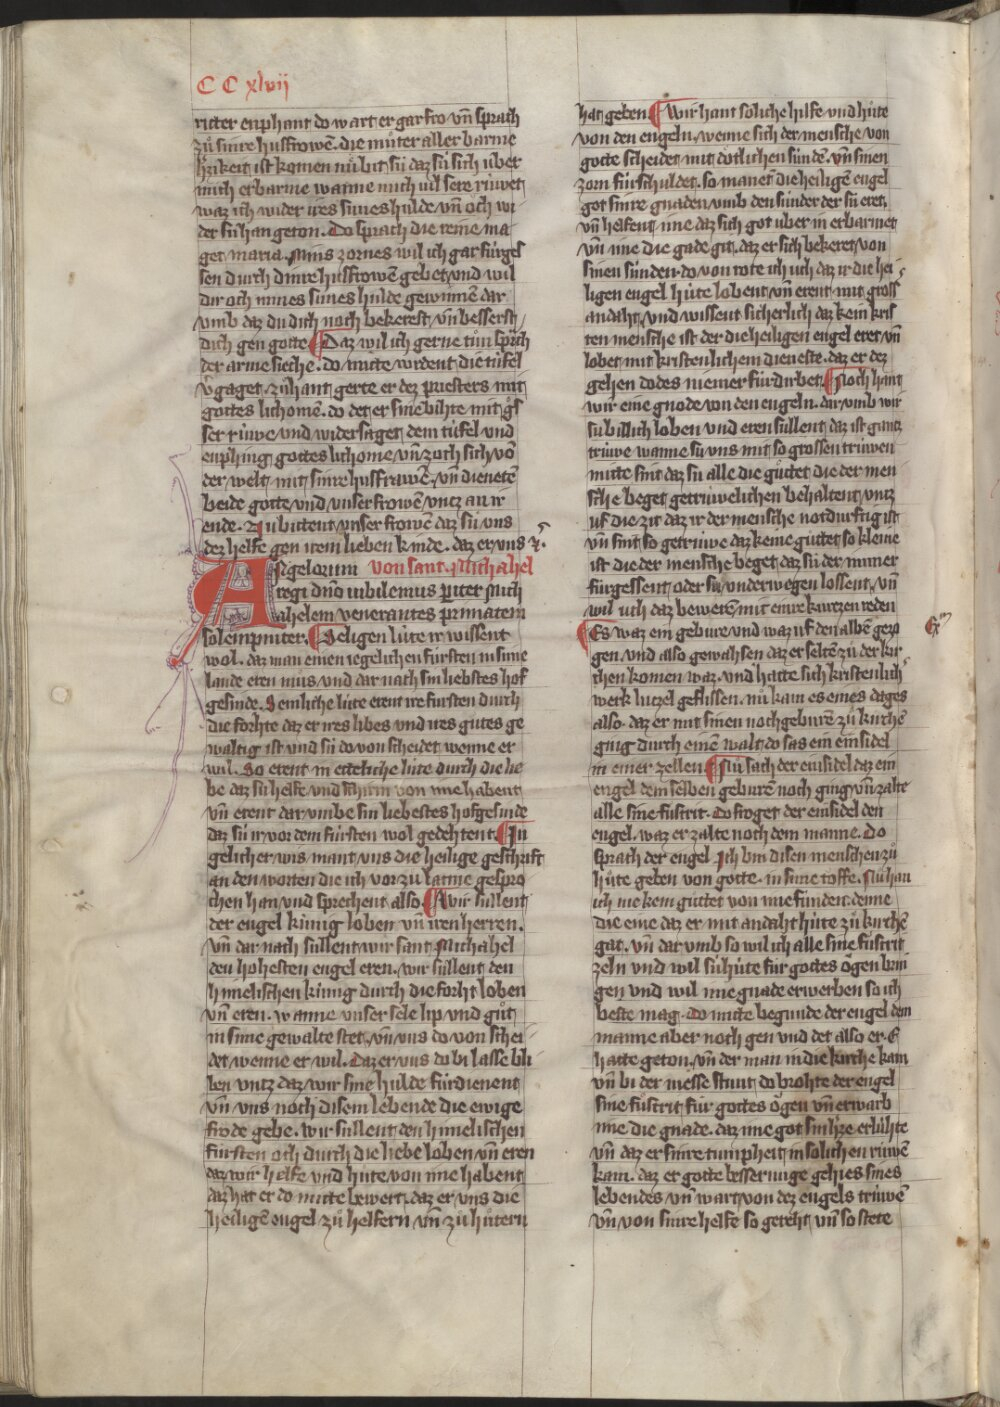 CC xlvii
ritter enphant do wart er gar fro vñ sprach
zů sinre husfrowē. die můter aller barme
hͣzikeit ist komen nů bit sú daz sú sich vber
mich erbarme wanne mich vil sere rúwet
waz ich wider ires sunes hulde vñ och wi
der sú han geton. Do sprach die reine ma
get maria. Mins zornes wil ich gar fúrges
sen durch dinre husfrowē gebet vnd wil
dir och mines sunes hulde gewinnē dar
vmb daz du dich noch bekerest vñ besserst
dich gen gotte Daz wil ich gerne tůn sprͣch
der arme sieche. do mitte wrdent die túfel
vͤgaget. zů hant gerte er dez priesters mit
gottes lichomē. do det er sine bihte mit gͦs
ser rúwe vnd widersaget dem túfel vnd
enphing gottes lichome vñ zoch sich vō
der welt mit sinre husfrawē. vñ dienetē
beide gotte vnd vnser frowē vntz an ir
ende. Nu bittent vnser frowē daz sú vns
dez helfe gen irem lieben kinde. daz er vns ⁊c.
Angelorum von sant Michahel
regi dn̄o iubilemus pͥter mich
ahelem venerantes primatem
solempniter. Seligen lúte ir wissent
wol. daz man einen iegelichen fúrsten in sime
lande eren mus vnd dar nach sin liebstes hof
gesinde. Semliche lúte erent ire fúrsten durch
die forhte daz er ires libes vnd ires gutes ge
waltig ist vnd sú do von scheidet wenne er
wil. So erent in etteliche lúte durch die lie
be daz sú helfe vnd schirm von ime habent
vñ erent dar vmbe sin liebestes hofgesinde
daz sú ir vor dem fúrsten wol gedehtent. In
gelicher wis mant vns die heilige geschrift
an den worten die ich vor zu latine gespro
chen han vnd sprechent also. Wir súllent
der engel kúnig loben vñ iren herren.
vñ dar nach súllent wir sant Michahel
den hohesten engel eren. wir súllent den
himelischen kúnig durch die forht loben
vñ eren. wanne vnser sele lip vnd gůt
in sime gewalte stet. vñ vns do von schei
det wenne er wil. Daz er vns do bi lasse bli
ben vntz daz wir sine hulde fúrdienent
vñ vns noch disem lebende die ewige
frode gebe. wir súllent den himelischen
fúrsten och durch die liebe loben vñ eren
daz wir helfe vnd hůte von ime habent
daz hat er do mitte bewert. daz er vns die
heiligē engel zů helfern vñ zů hůtern
hat geben. Wir hant soliche hilfe vnd hůte
von den engeln. wenne sich der mensche von
gotte scheidet mit dötlichen súndē. vñ sinen
zorn fúrschuldet. so manēt die heiligē engel
got sinre gnaden vmb den súnder der sú eret.
vñ helfent ime daz sich got vber in erbarmet
vñ ime die gnade git. daz er sich bekeret von
sinen súnden. do von rote ich úch daz ir die hei
ligen engel húte lobent vñ erent mit gross
andaht. vnd wissent sicherlich daz kein kris
ten mensche ist der die heiligen engel eret vñ
lobet mit kristenlichem dieneste. daz er dez
gehen dodes niemer fúrdirbet. Noch hant
wir eine gnode von den engeln. dar vmb wir
sú billich loben vnd eren súllent. daz ist gantz
trúwe wanne sú vns mit so grossen trúwen
mitte sint daz sú alle die gůttet die der men
sche beget getrúwelichen behaltent. vntz
uf die zit daz ir der mensche notdurftig ist
vñ sint so getrúwe daz keine gůttet so kleine
ist die der mensche beget. daz sú der nimer
fúrgessent oder sú vnderwegen lossent. vñ
wil úch daz bewerē mit einre kurtzen reden
Es waz ein gebure vnd waz uf den albē gezo
gen. vnd also gewahsen daz er seltē zů der kir
chen komen waz. vnd hatte sich kristenlich
werk lutzel geflissen. nů kam es eines dages
also. daz er mit sinen nochgeburē zů kirchē
ging durch einē walt. do sas ein einsidel
in einer zellen Nů sach der einsidel daz ein
engel dem selben geburē noch ging vñ zalte
alle sine fustrit. Do froget der einsidel den
engel. waz er zalte noch dem manne. Do
sprach der engel Ich bin disen menschen zů
hůte geben von gotte. in sime toffe. Nu han
ich nie kein gůttet von ime funden. denne
die eine daz er mit andaht húte zů kirchē
gat. vñ dar vmb so wil ich alle sine fustrit
zeln vnd wil sú húte fúr gottes ögen brin
gen vnd wil ime gnade erwerben so ich
beste mag. Do mitte begunde der engel dem
manne aber noch gen vnd det also er. E
hatte geton. vñ der man in die kirche kam
vñ bi der messe stunt. do brohte der engel
sine fustrit fúr gottes ögen vñ erwarb
ime die gnade. daz ime got sin hͣze erlúhte
vñ daz er sinre tumpheit in solichen rúwē
kam. daz er gotte besserunge gehies sines
lebendes vñ wart von dez engels trúwē
vñ von sinre helfe so gereht vñ so stete